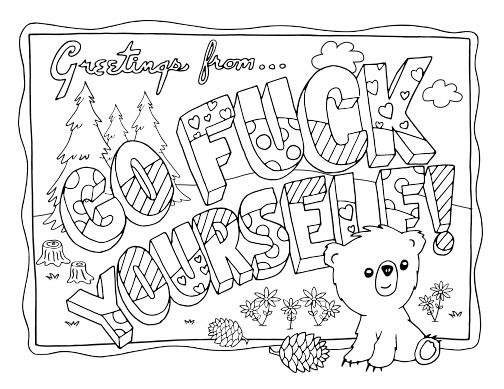 Greetings from...
GO FUCK
YOURSELF!